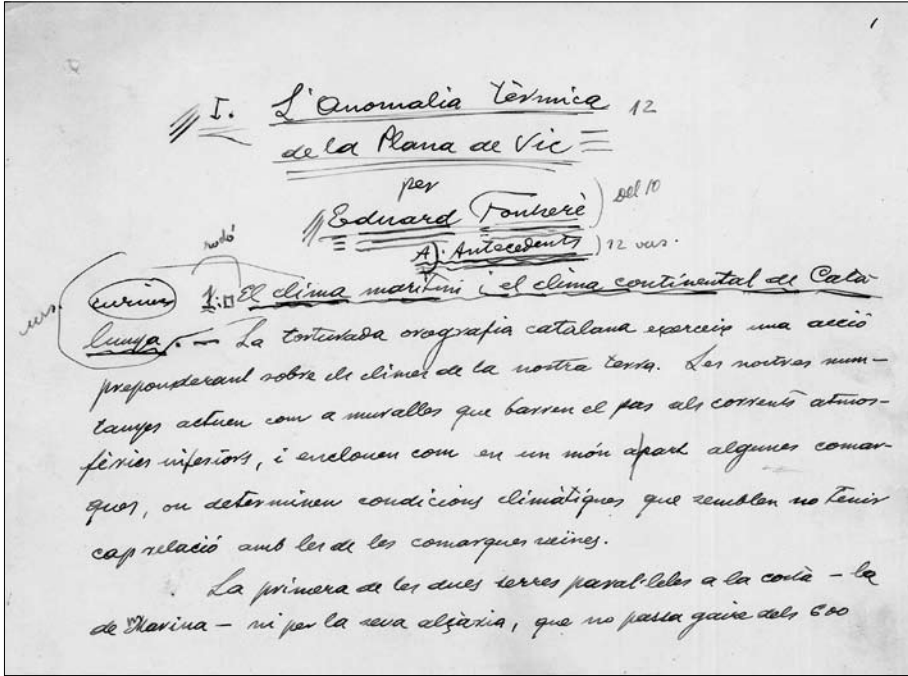 1
I. L'Anomalia tèrmica 12
de la Plana de Vic
per
Eduard Fontserè ) del 10
A). Antecedents ) 12 vers.
rodó
vers. cursiva 1.º El clima marítim i el clima continental de Cata
lunya. — La torturada orografia catalana exerceix una acció
preponderant sobre els climes de la nostra terra. Les nostres mun-
tanyes actuen com a muralles que barren el pas als corrents atmos-
fèrics inferiors, i enclouen com en un món apart algunes comar-
ques, on determinen condicions climàtiques que semblen no tenir
cap relació amb les de les comarques veïnes.
La primera de les dues serres paral·leles a la costa — la
de Marina — ni per la seva alçària, que no passa gaire dels 600